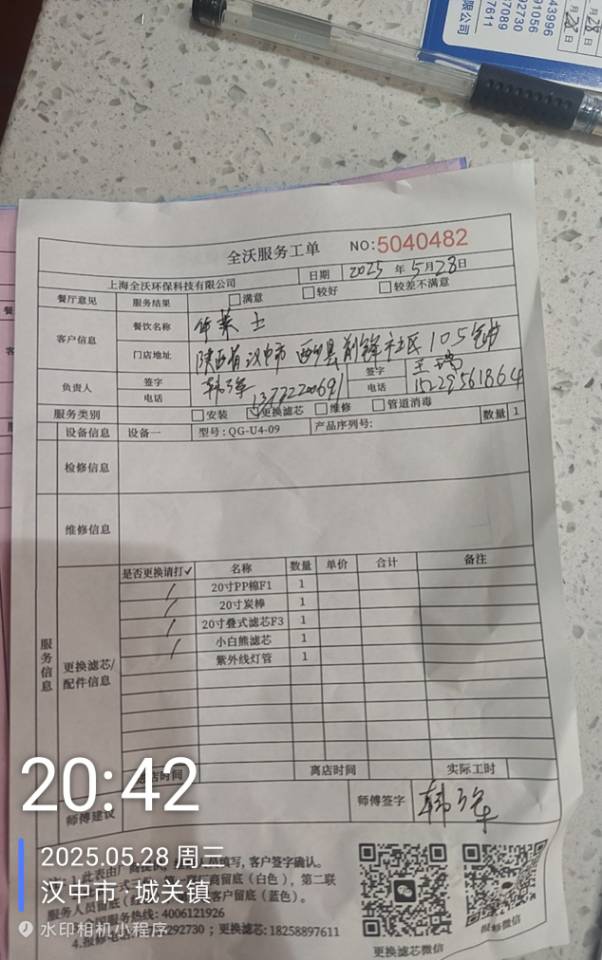 43996
91056
92730
37089
57611
限公司
月28日
月28日
全沃服务工单 NO:5040482
上海全沃环保科技有限公司 日期 2025年5月28日
餐厅意见 服务结果 满意 较好 较差不满意
客户信息 餐饮名称 华莱士
门店地址 陕西省汉中市西乡县前锋社区105
负责人 签字 签字 王瑞
电话 电话 15229561864
服务类别 安装 更换滤芯 维修 管道消毒
设备信息 设备一 型号:QG-U4-09 产品序列号: 数量 1
检修信息
维修信息
服务信息
更换滤芯/配件信息
是否更换请打✓ 名称 数量 单价 合计 备注
20寸PP棉F1 1
20寸炭棒 1
20寸叠式滤芯F3 1
小白熊滤芯 1
紫外线灯管 1
店时间 离店时间 实际工时
师傅建议 师傅签字
20:42
2025.05.28 周三
汉中市·城关镇
水印相机小程序
1.此表由 填写,客户签字确认。
厂商留底(白色),第二联
服务人员留底 客户留底(蓝色)。
全国服务热线:4006121926
4.报修电 292730;更换滤芯:18258897611
更换滤芯微信
报修微信